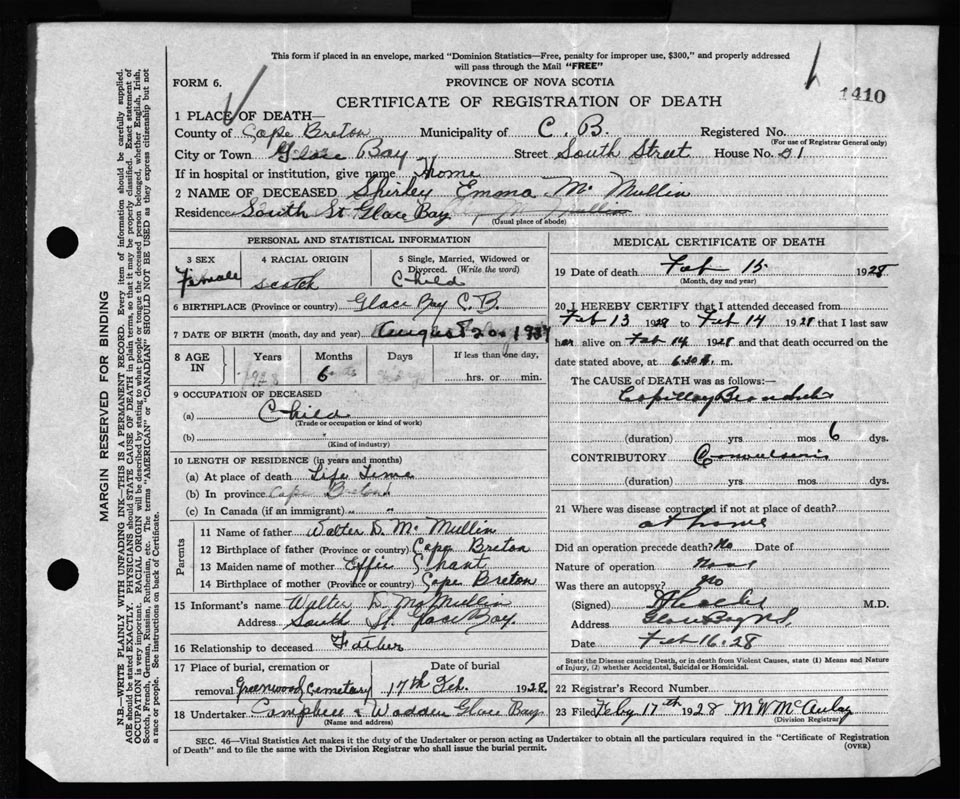 This form if placed in an envelope, marked "Dominion Statistics—Free, penalty for improper use, $300," and properly addressed
will pass through the Mail "FREE"
FORM 6.
PROVINCE OF NOVA SCOTIA
1410
CERTIFICATE OF REGISTRATION OF DEATH
1 PLACE OF DEATH—
County of Cape Breton Municipality of C. B. Registered No.
(For use of Registrar General only)
City or Town Glace Bay Street South Street House No. 21
If in hospital or institution, give name Home
2 NAME OF DECEASED Shirley Emma Mc Mullin
Residence South St Glace Bay
(Usual place of abode)
MARGIN RESERVED FOR BINDING
N.B.—WRITE PLAINLY WITH UNFADING INK—THIS IS A PERMANENT RECORD. Every item of information should be carefully supplied.
AGE should be stated EXACTLY. PHYSICIANS should STATE CAUSE OF DEATH in plain terms, so that it may be properly classified. Exact statement of
OCCUPATION is very important. RACIAL ORIGIN will be described by stating to what people or tongue the deceased person belonged, whether English, Irish,
Scotch, French, German, Russian, Ruthenian, etc. The terms "AMERICAN" or "CANADIAN" SHOULD NOT BE USED as they express citizenship but not
a race or people. See instructions on back of Certificate.
PERSONAL AND STATISTICAL INFORMATION
3 SEX 4 RACIAL ORIGIN 5 Single, Married, Widowed or
Divorced. (Write the word)
Female Scotch Child
6 BIRTHPLACE (Province or country) Glace Bay C. B.
7 DATE OF BIRTH (month, day and year) August 20 1927
8 AGE IN Years Months Days If less than one day,
6 hrs. or min.
9 OCCUPATION OF DECEASED
(a) Child
(Trade or occupation or kind of work)
(b)
(Kind of industry)
10 LENGTH OF RESIDENCE (in years and months)
(a) At place of death Life Time
(b) In province Cape Breton
(c) In Canada (if an immigrant) " "
Parents
11 Name of father Walter D. Mc Mullin
12 Birthplace of father (Province or country) Cape Breton
13 Maiden name of mother Effie Ghant
14 Birthplace of mother (Province or country) Cape Breton
15 Informant's name Walter D. McMullin
Address South St. Glace Bay.
16 Relationship to deceased Father
17 Place of burial, cremation or Date of burial
removal Greenwood Cemetary 17th Feb. 1928
18 Undertaker Campbell & Wadden Glace Bay
(Name and address)
MEDICAL CERTIFICATE OF DEATH
19 Date of death Feb 15 1928
(Month, day and year)
20 I HEREBY CERTIFY that I attended deceased from
Feb 13 1928 to Feb 14 1928 that I last saw
her alive on Feb 14 1928 and that death occurred on the
date stated above, at 6.30 A. m.
The CAUSE of DEATH was as follows:—
Capillary Bronchitis
(duration) yrs. mos 6 dys.
CONTRIBUTORY Convulsions
(duration) yrs. mos. dys.
21 Where was disease contracted if not at place of death?
at home
Did an operation precede death? No Date of
Nature of operation None
Was there an autopsy? No
(Signed) M.D.
Address Glace Bay N.S.
Date Feb 16.28
State the Disease causing Death, or in death from Violent Causes, state (1) Means and Nature
of Injury, (2) whether Accidental, Suicidal or Homicidal.
22 Registrar's Record Number
23 Filed Feby 17th 1928 M W McAulay
(Division Registrar)
SEC. 46—Vital Statistics Act makes it the duty of the Undertaker or person acting as Undertaker to obtain all the particulars required in the "Certificate of Registration
of Death" and to file the same with the Division Registrar who shall issue the burial permit.
(OVER)